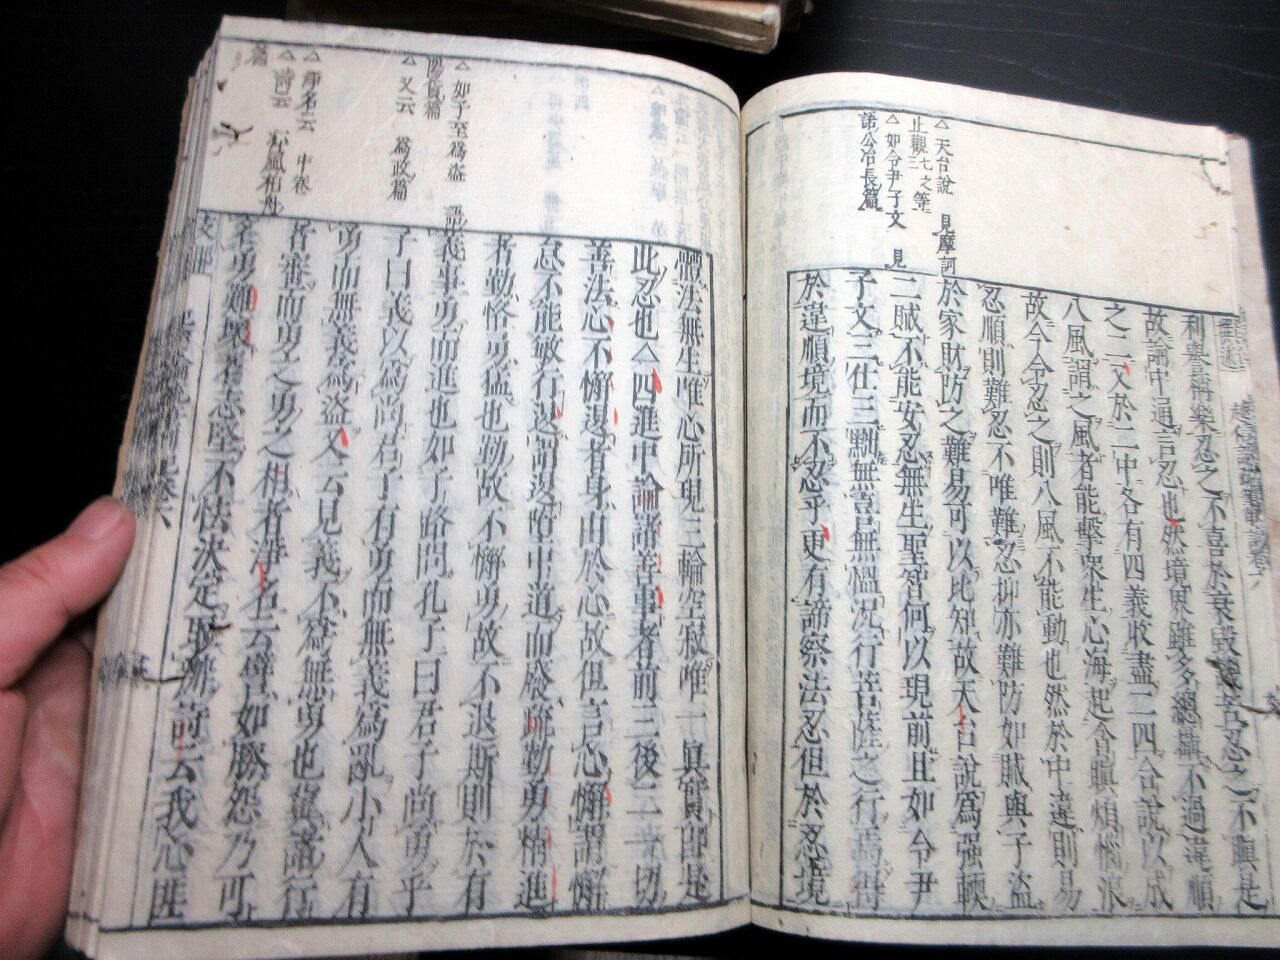 △天台說 見摩訶
止觀七之三之等
△如令尹子文 見
語公冶長篇
利與稱樂忍之不喜於衰毀譏苦忍之不瞋是
故論中通言忍也然境界雖多總雖不過違順
之二又於二中各有四義收盡二四合說以成
八風謂之風者能擊眾生心海起會瞋煩惱浪
故今令忍之則八風不能動也然於中違則易
忍順則難忍不唯難忍抑亦難防如賊與子盜
於家財防之難易可以比知故天台說爲強輭
二賊不能安忍無生聖智何以現前且如令尹
子文三仕三黜無喜無慍況行菩薩之行焉得
於違順境而不忍乎更有諦察法忍但於忍境
體法無生唯心所現三輪空寂唯一眞實即是
此忍也△四進中論諸善事者前三後二等切
善法心不懈退者身由於心故但言心懈謂懈
怠不能敏行退謂退墮中道而廢從勤勇精進
者勤恪勇猛也勤故不懈勇故不退斯則於有
義事勇而進也如子路問孔子曰君子尚勇乎
子曰義以爲尚君子有勇而無義爲亂小人有
勇而無義爲盜又云見義不爲無勇也蓋識行
者審而勇之勇之相者淨名云譬如勝怨乃可
名勇難壞者志堅不怯決定取辦詩云我心匪
△如子至爲盜 語
陽貨篇
△又云 爲政篇
△淨名云 中卷
△詩云 邶風柏舟